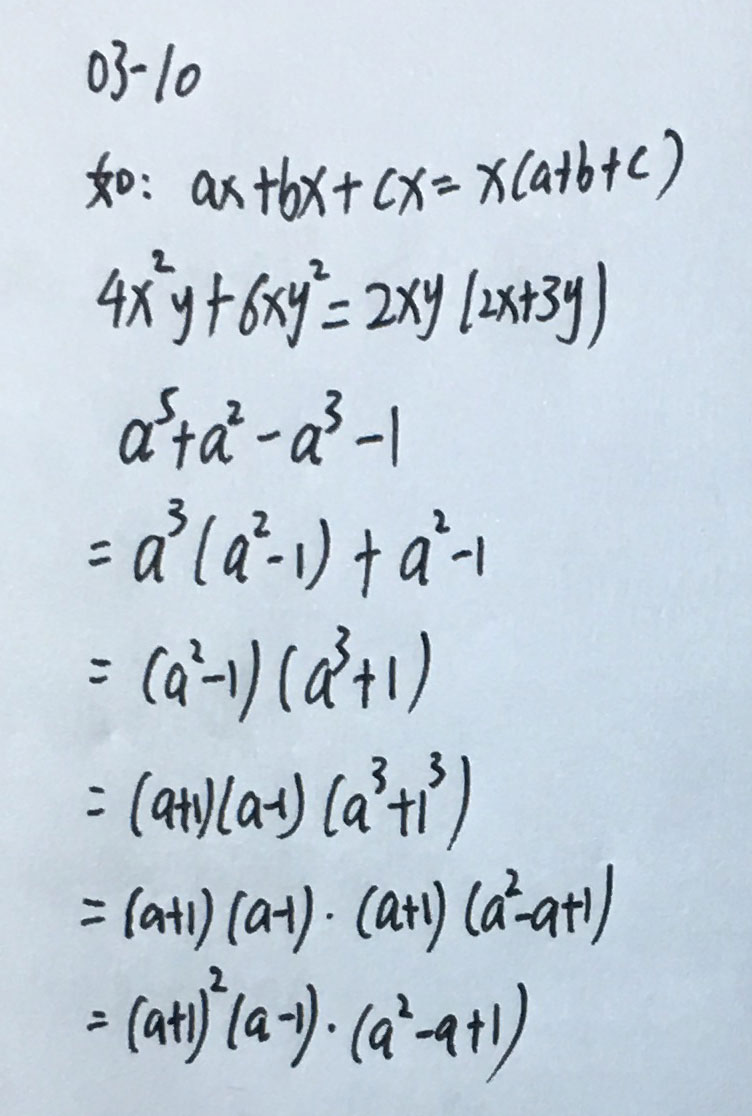 03-10
如: ax+bx+cx=x(a+b+c)
4x²y+6xy²=2xy(2x+3y)
a⁵+a²-a³-1
=a³(a²-1)+a²-1
=(a²-1)(a³+1)
=(a+1)(a-1)(a³+1³)
=(a+1)(a-1)·(a+1)(a²-a+1)
=(a+1)²(a-1)·(a²-a+1)